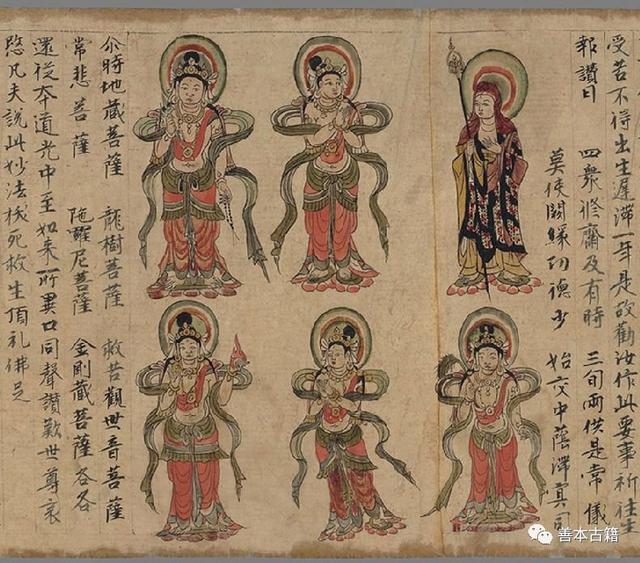 受苦不得出生遲滯一年是故勸汝作此要事祈往生
報讚曰 四衆修齋及有時 三旬兩供是常儀
莫使闕緣功德少 始交中蔭滯冥司
尒時地藏菩薩 龍樹菩薩 救苦觀世音菩薩
常悲菩薩 陁羅尼菩薩 金剛藏菩薩各各
還從夲道光中至如来所異口同聲讚歎世尊哀
愍凡夫說此妙法拔死救生頂礼佛足
善本古籍